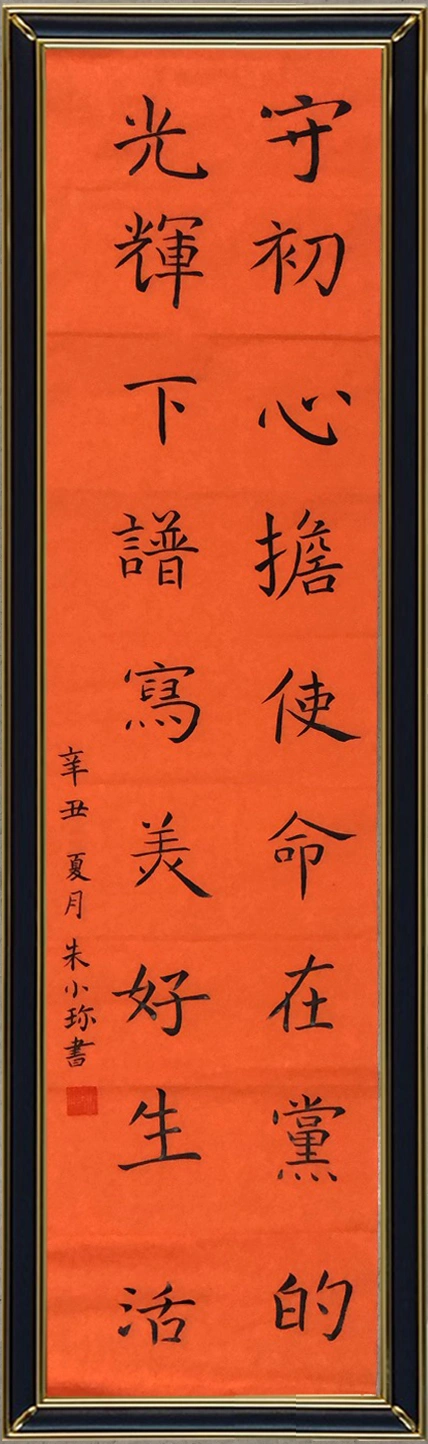 守初心擔使命在黨的
光輝下譜寫美好生活
辛丑夏月朱小珎書